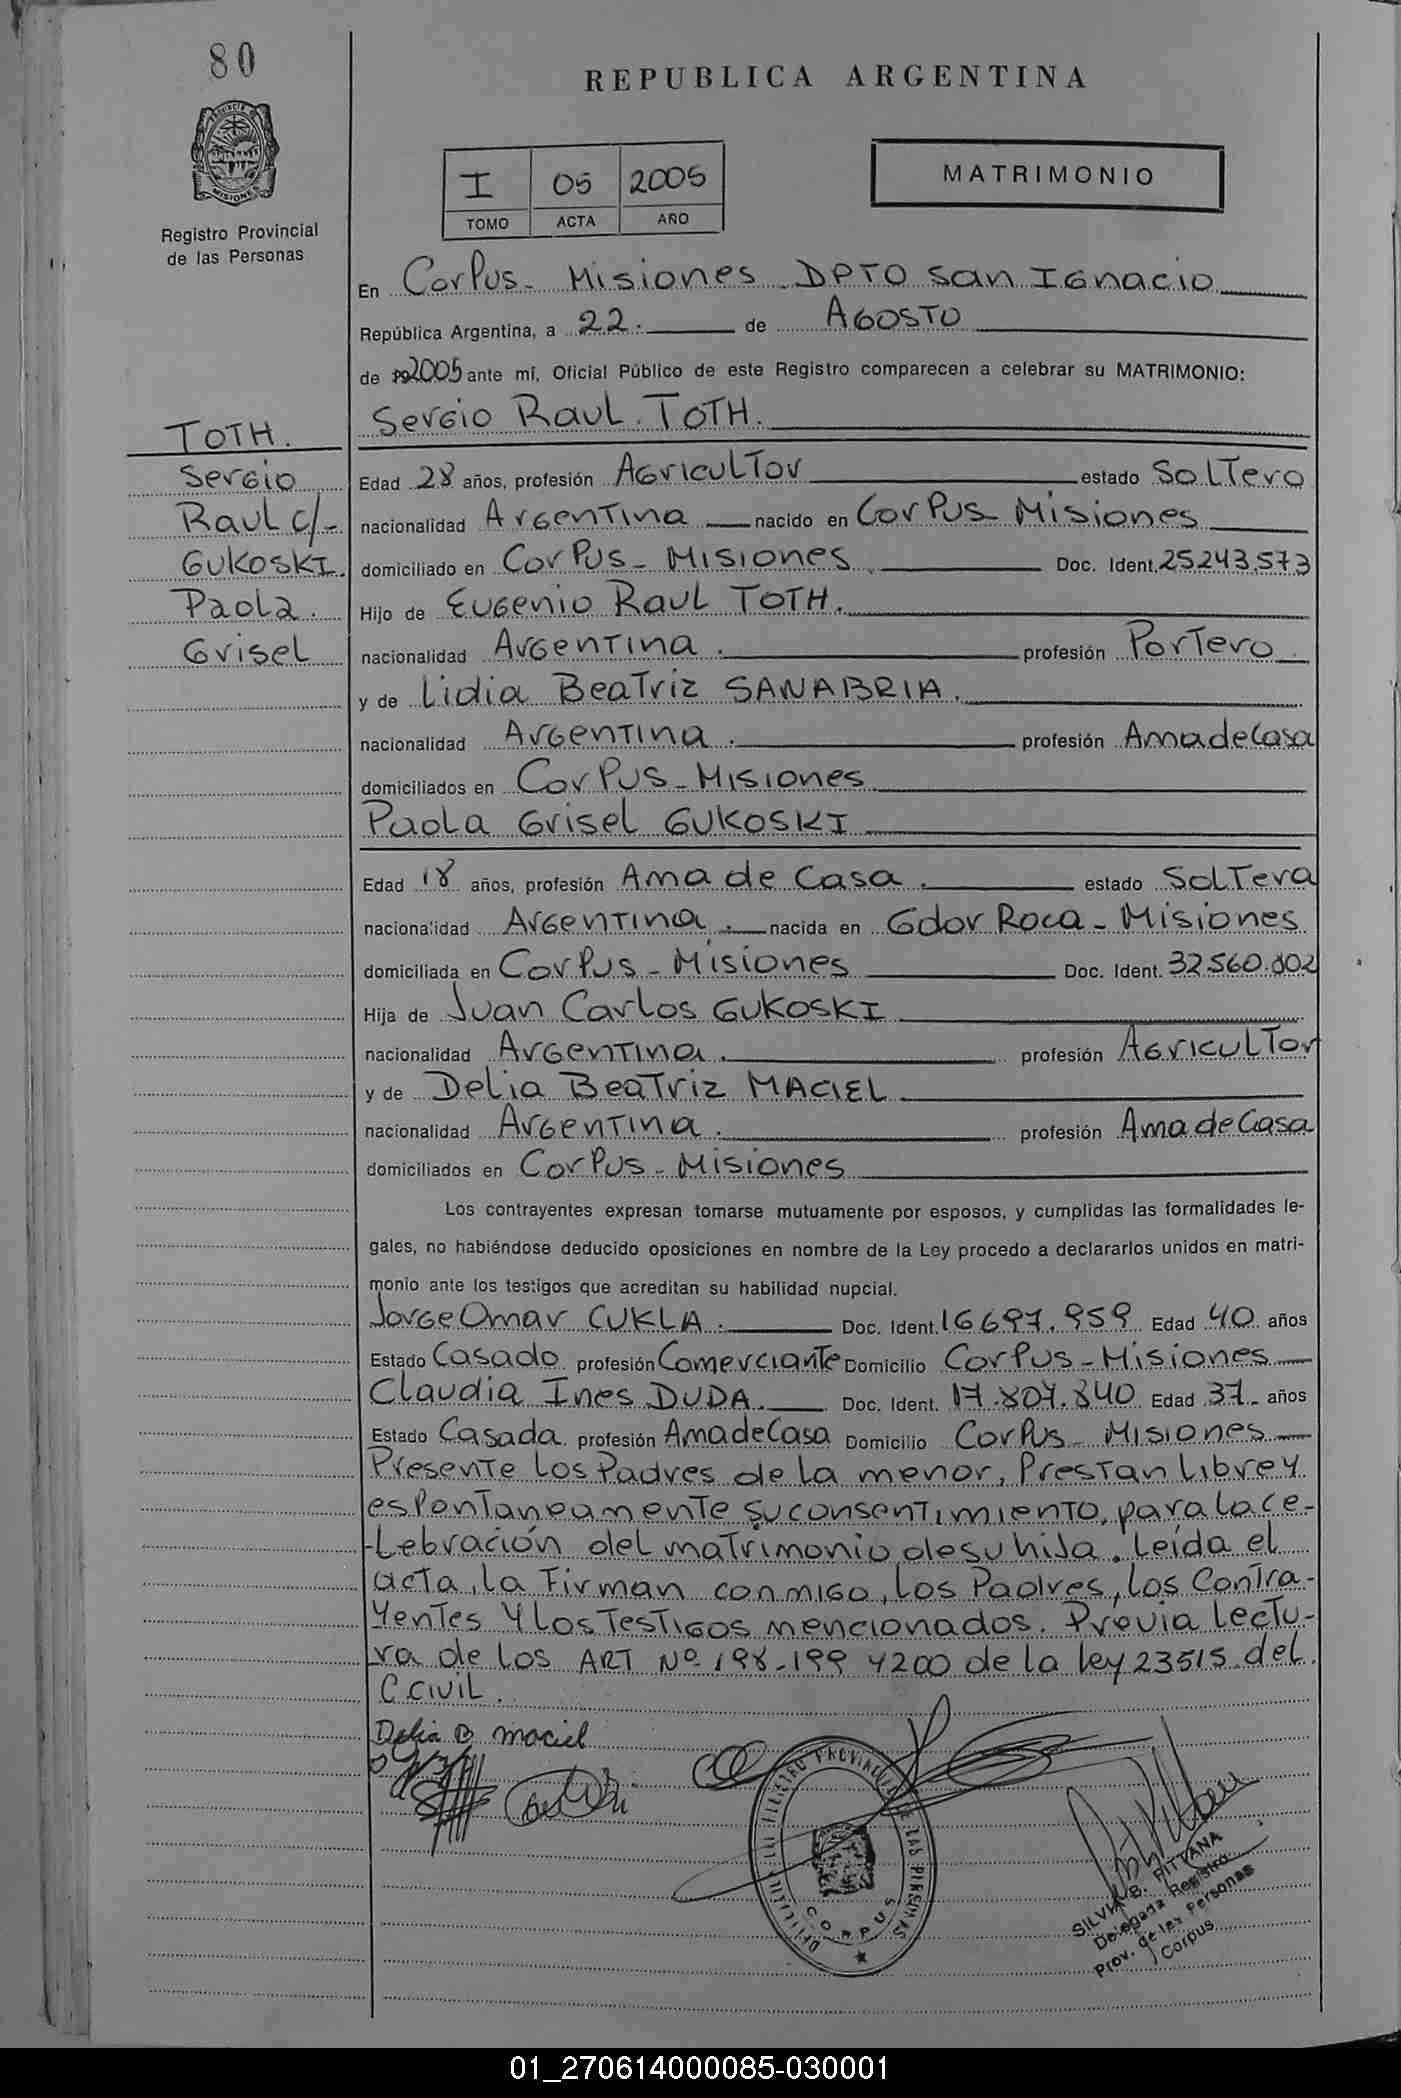 80
REPUBLICA ARGENTINA
PROVINCIA DE
MISIONES
Registro Provincial
de las Personas
I 05 2005
TOMO ACTA AÑO
MATRIMONIO
En Corpus - Misiones - DPTO San Ignacio
República Argentina, a 22. de AGOSTO
de 2005 ante mí, Oficial Público de este Registro comparecen a celebrar su MATRIMONIO:
Sergio Raul TOTH.
TOTH.
Sergio
Raul c/-
GUKOSKI.
Paola.
Grisel
Edad 28 años, profesión Agricultor estado Soltero
nacionalidad Argentina nacido en Corpus - Misiones
domiciliado en Corpus - Misiones. Doc. Ident. 25243.573
Hijo de Eugenio Raul TOTH.
nacionalidad Argentina. profesión Portero.
y de Lidia Beatriz SANABRIA.
nacionalidad Argentina. profesión Ama de Casa
domiciliados en Corpus - Misiones
Paola Grisel GUKOSKI
Edad 18 años, profesión Ama de Casa. estado Soltera
nacionalidad Argentina. nacida en Gdor Roca - Misiones
domiciliada en Corpus - Misiones Doc. Ident. 32.560.802
Hija de Juan Carlos GUKOSKI
nacionalidad Argentina. profesión Agricultor
y de Delia Beatriz MACIEL
nacionalidad Argentina. profesión Ama de Casa
domiciliados en Corpus - Misiones
Los contrayentes expresan tomarse mutuamente por esposos, y cumplidas las formalidades le-
gales, no habiéndose deducido oposiciones en nombre de la Ley procedo a declararlos unidos en matri-
monio ante los testigos que acreditan su habilidad nupcial.
Jorge Omar CUKLA. Doc. Ident. 16697.959 Edad 40 años
Estado Casado profesión Comerciante Domicilio Corpus - Misiones
Claudia Ines DUDA. Doc. Ident. 17.807.840 Edad 37 años
Estado Casada profesión Ama de Casa Domicilio Corpus - Misiones
Presente los Padres de la menor, Prestan libre y
espontaneamente su consentimiento, para la ce-
lebración del matrimonio de su hija. Leída el
acta, la Firman conmigo, los Padres, los Contra-
yentes y los testigos mencionados. Previa lectu-
ra de los ART Nº 198-199 y 200 de la ley 23515 del
C. CIVIL.
Delia B Maciel
REGISTRO PROVINCIAL DE LAS PERSONAS
CORPUS
SILVIA B. PITTANA
Delegada Registro
Prov. de las Personas
Corpus
01_270614000085-030001